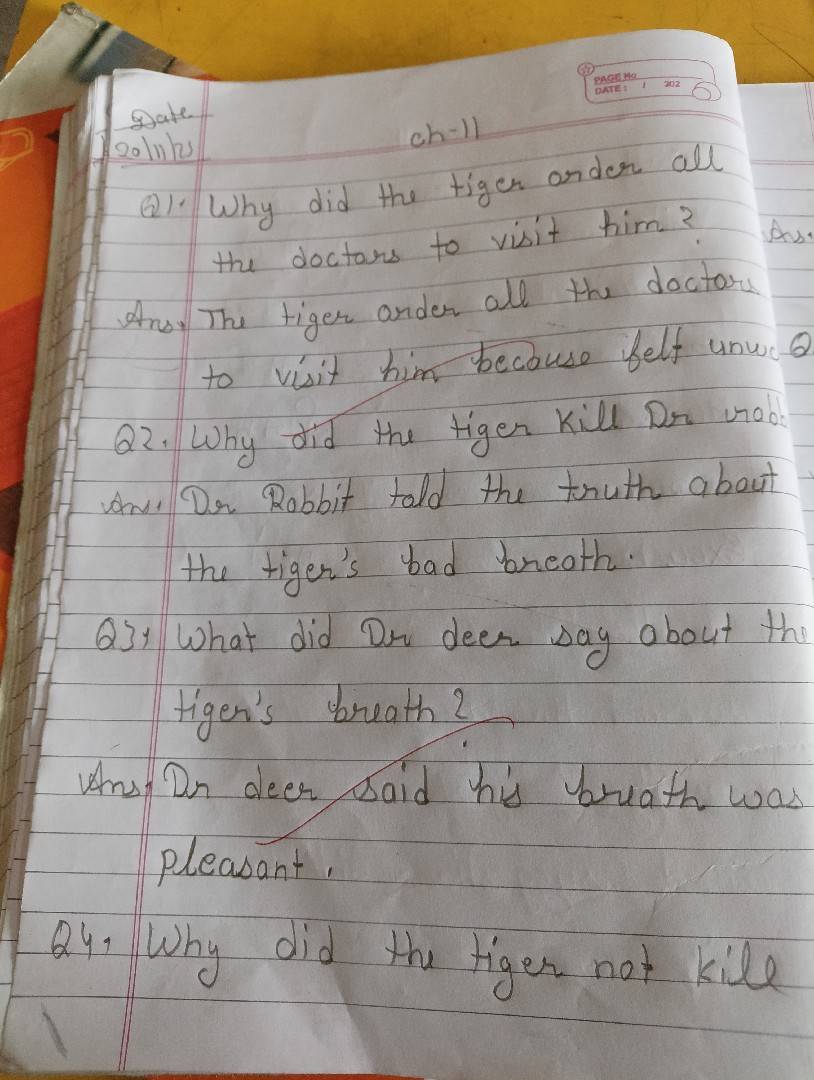 PAGE No
DATE: / 202
Date
20/11/25
ch-11
Q1. Why did the tiger order all
the doctors to visit him?
Ans.
Ans. The tiger order all the doctors
to visit him because felt unw
Q
Q2. Why did the tiger kill Dr rabb
Ans. Dr Rabbit told the truth about
the tiger's bad breath.
Q3. What did Dr deer say about the
tiger's breath?
Ans. Dr deer said his breath was
pleasant.
Q4. Why did the tiger not kill